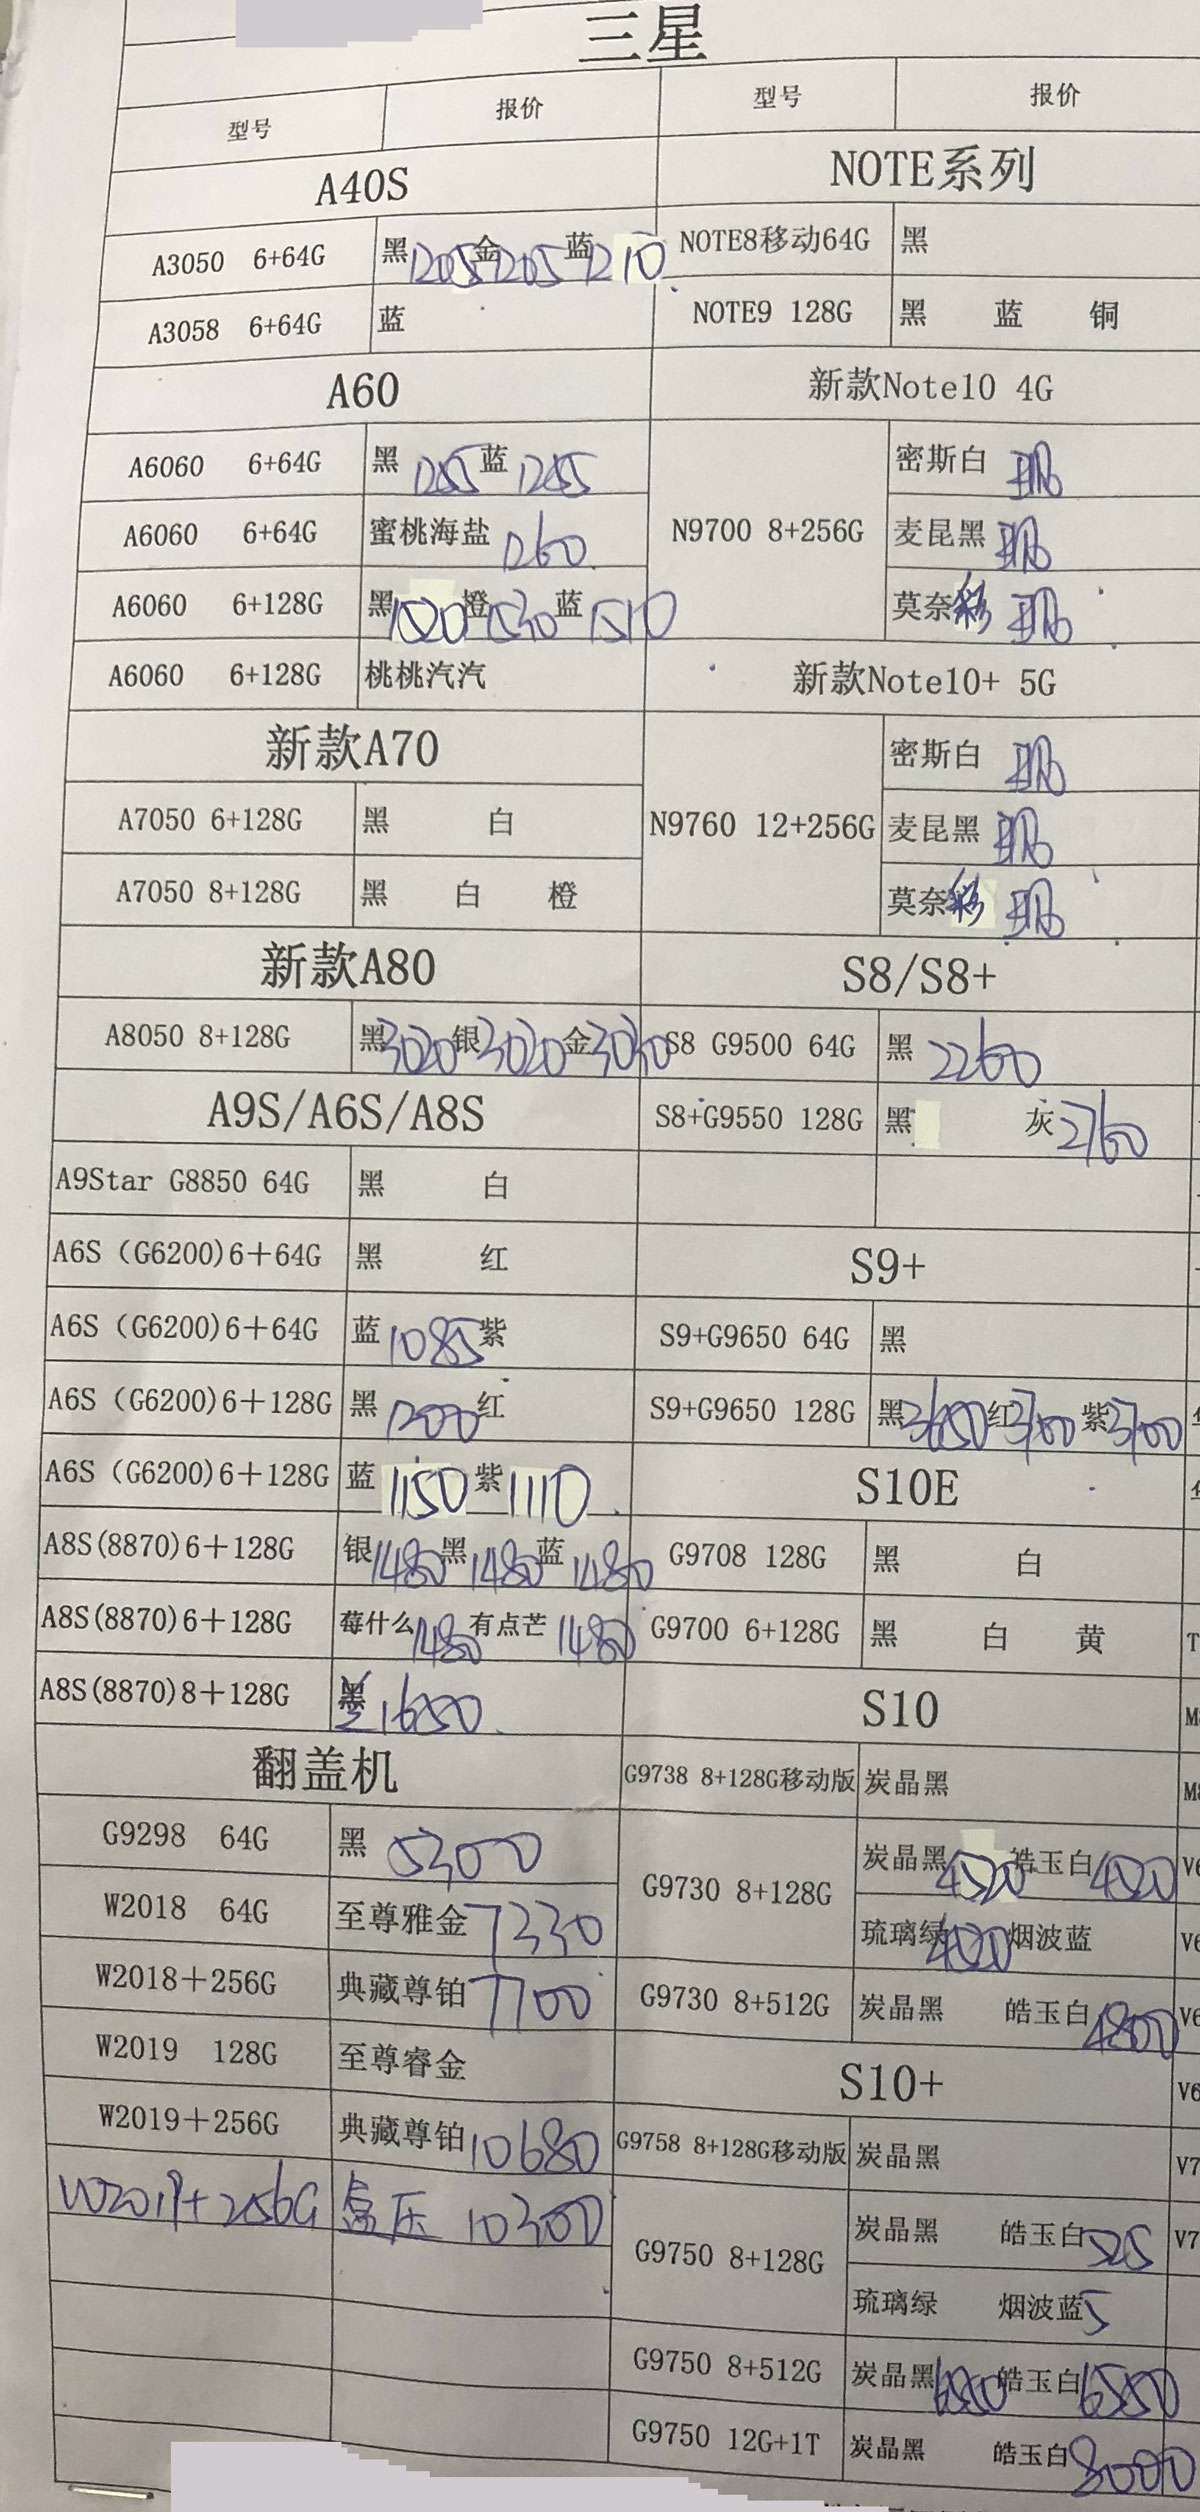 三星
型号 报价 型号 报价
A40S
A3050 6+64G 黑1205金1205蓝1210
A3058 6+64G 蓝
A60
A6060 6+64G 黑 1255 蓝 1255
A6060 6+64G 蜜桃海盐 1260
A6060 6+128G 黑1520橙1530蓝1510
A6060 6+128G 桃桃汽汽
新款A70
A7050 6+128G 黑 白
A7050 8+128G 黑 白 橙
新款A80
A8050 8+128G 黑3020银3020金3030
A9S/A6S/A8S
A9Star G8850 64G 黑 白
A6S（G6200)6＋64G 黑 红
A6S（G6200)6＋64G 蓝1085紫
A6S（G6200)6＋128G 黑1200红
A6S（G6200)6＋128G 蓝1150紫1110
A8S(8870)6＋128G 银1480黑1480蓝1480
A8S(8870)6＋128G 莓什么1480有点芒1480
A8S(8870)8＋128G 1650
翻盖机
G9298 64G 黑 5300
W2018 64G 至尊雅金7330
W2018＋256G 典藏尊铂7700
W2019 128G 至尊睿金
W2019＋256G 典藏尊铂10680
W2019+256G 盒压 10300
NOTE系列
NOTE8移动64G 黑
NOTE9 128G 黑 蓝 铜
新款Note10 4G
N9700 8+256G 密斯白
麦昆黑
莫奈彩
新款Note10+ 5G
N9760 12+256G 密斯白
麦昆黑
莫奈彩
S8/S8+
S8 G9500 64G 黑 2260
S8+G9550 128G 黑 灰2760
S9+
S9+G9650 64G 黑
S9+G9650 128G 黑3650红3700紫3700
S10E
G9708 128G 黑 白
G9700 6+128G 黑 白 黄
S10
G9738 8+128G移动版 炭晶黑
G9730 8+128G 炭晶黑4520皓玉白4520
琉璃绿4520烟波蓝
G9730 8+512G 炭晶黑 皓玉白4800
S10+
G9758 8+128G移动版 炭晶黑
G9750 8+128G 炭晶黑 皓玉白525
琉璃绿 烟波蓝5
G9750 8+512G 炭晶黑6550皓玉白6550
G9750 12G+1T 炭晶黑 皓玉白8000